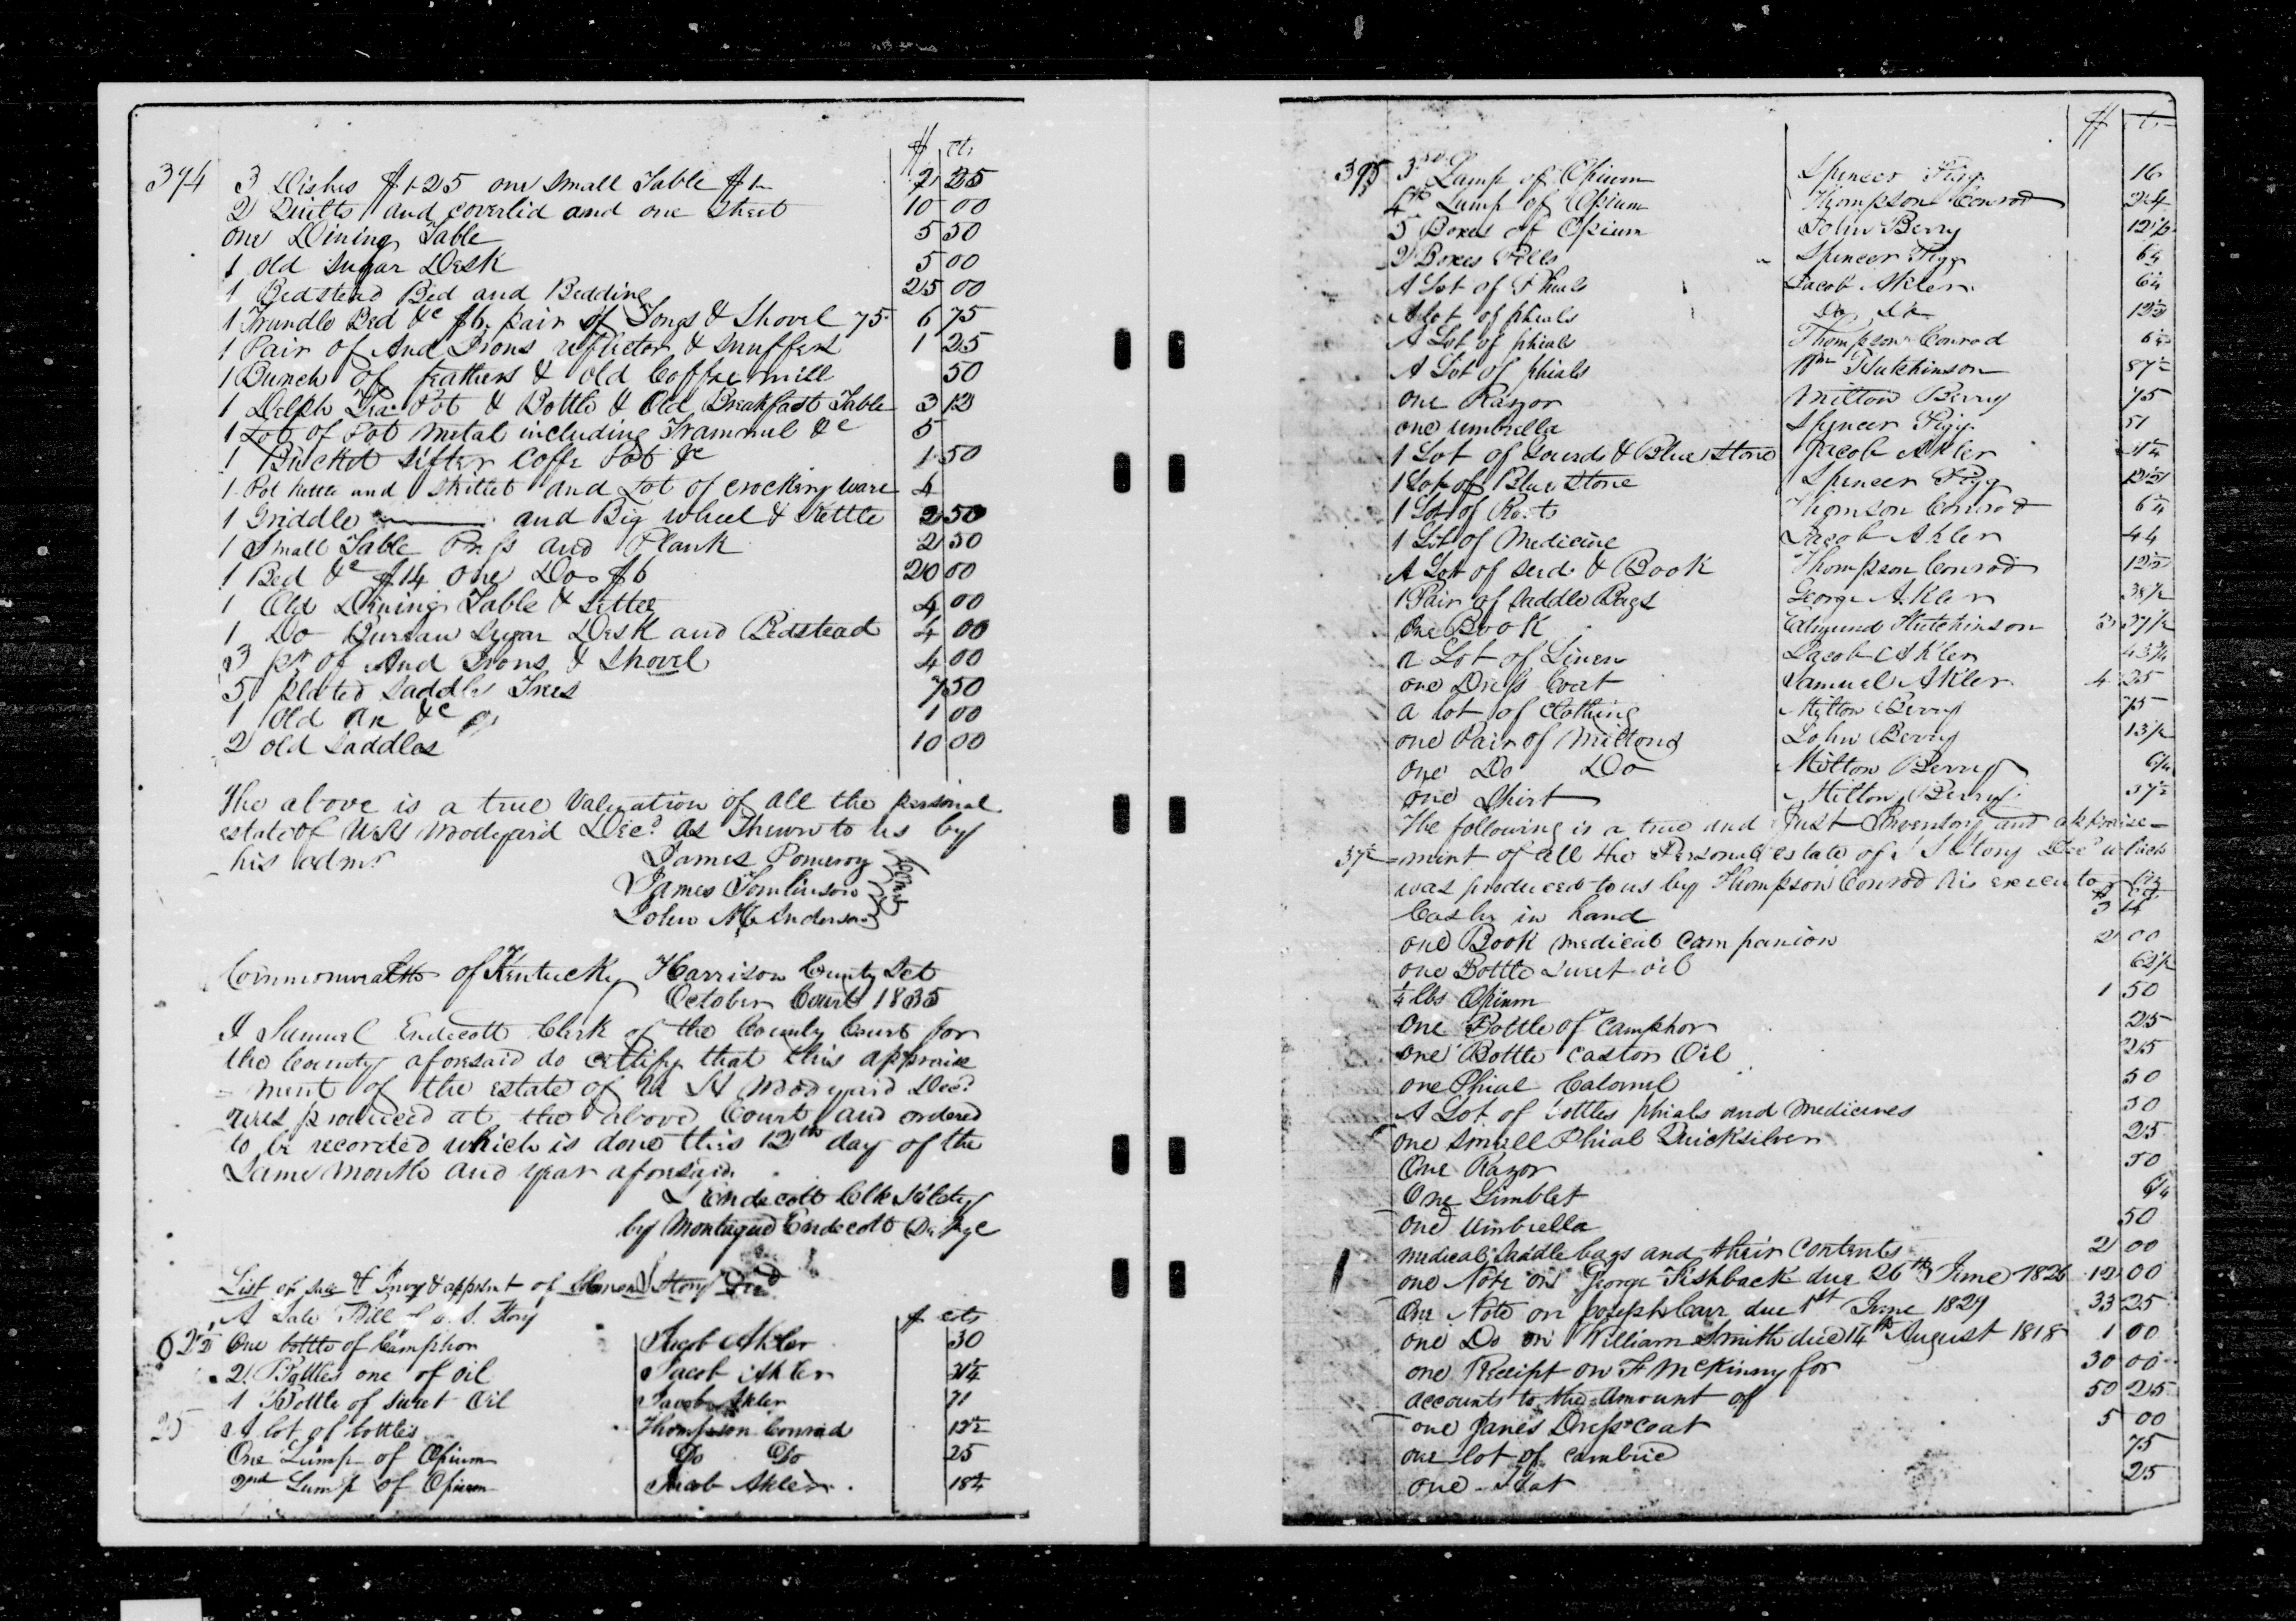 $ cts
394 3 Dishes $1.25 one small Table $1- 2 25
2 Quilts and coverlid and one sheet 10 00
one Dining Table 5 50
1 old sugar Desk 5 00
1 Bedstead Bed and Bedding 25 00
1 Trundle Bed &c $6, pair of Tongs & Shovel 75 6 75
1 Pair of And Irons reflector & snuffers 1 25
1 Bunch of feathers & old Coffee mill 50
1 Delph Tea Pot & Bottle & Old Breakfast Table 3 12
1 Lot of Pot metal including Trammul &c 5
1 Bucket sifter Coffe Pot &c 1 50
1 Pot Kettle and Skillet and Lot of crockery ware 4
1 Griddle and Big wheel & Kettle 2 50
1 Small Table and Plank 2 50
1 Bed &c $14 one Do $6 20 00
1 Old Dining Table & Settee 4 00
1 Do Bureau Sugar Desk and Bedstead 4 00
3 pr of And Irons & Shovel 4 00
5 plated saddle Trees 7 50
1 old ax &c 1 00
2 old saddles 10 00
The above is a true valuation of all the personal
estate of Woodyard Decd. as shewn to us by
his admr
James Pomeroy
James Tomlinson
John Mc Anderson
Commonwealth of Kentucky Harrison County Sct
October Court 1835
I Samuel Endecott Clerk of the County Court for
the County aforesaid do certify that this appraise
= ment of the estate of W H Woodyard Decd.
was produced at the above Court and ordered
to be recorded which is done this 12th day of the
same month and year aforesaid.
S Endecott Clk
by Montague Endecott
List of sale & Invy & appmt of Story Decd
A Sale Bill of S. S. Story $ cts
62½ One bottle of Camphor Jacob Akler 30
2 Bottles one of oil Jacob Akler 31¼
1 Bottle of sweet Oil Jacob Akler 71
25 A lot of bottles Thompson Conrad 12½
One Lump of Opium Do Do 25
2nd Lump of Opium Jacob Akler 18¾
$ cts
395 3rd Lump of Opium Spencer Figg 16
4th Lump of Opium Thompson Conrad 24
5 Boxes of Opium John Berry 12½
2 Boxes Pills Spencer Figg 6¼
A Lot of Phials Jacob Akler 6¼
A Lot of phials Do Do 12½
A Lot of phials Thompson Conrad 6¼
A Lot of phials Wm Hutchinson 87½
one Razor Milton Berry 75
one umbrella Spencer Figg 51
1 Lot of Gourds & Blue Stone Jacob Akler
1 Lot of Blue Stone Spencer Figg 12½
1 Lot of Roots Thomson Conrad 6¼
1 Lot of Medicine Jacob Akler 44
A Lot of seeds & Book Thompson Conrad 12½
1 Pair of Saddle Bags George Akler
One Book Edmund Hutchinson 3 37½
a Lot of Linen Jacob Akler 43¾
one Dress Coat Samuel Akler 4 25
a lot of Clothing Milton Berry 75
one Pair of Mittons John Berry 13½
one Do Do Milton Berry 6¼
one Shirt Milton Berry 37½
The following is a true and Just Inventory and appraise-
37½ =ment of all the Personal estate of S S Story Decd which
was produced to us by Thompson Conrad his executor
Cash in hand 3
one Book medical Companion 2 00
one Bottle Sweet oil 62½
¼ lbs Opium 1 50
One Bottle of Camphor 25
one Bottle Castor Oil 25
one Phial Calomel 50
A Lot of bottles phials and medicines 50
one small Phial Quicksilver 25
One Razor 50
One Gimblet 6¼
one umbrella 50
medical saddle bags and their contents 2 00
one Note on George Fishback due 26th June 1826 12 00
One Note on Joseph Carr due 1st June 1829 33 25
one Do on William Smith due 14th August 1818 1 00
one Receipt on McKinny for 30 00
accounts to the amount of 50 25
one Janes Dress coat 5 00
one lot of cambric 75
one Hat 25